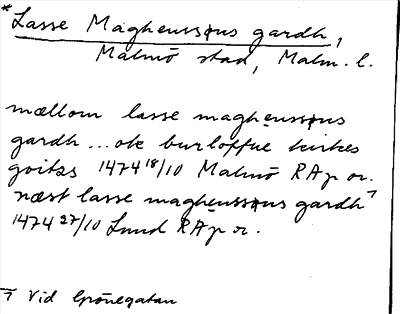 *Lasse Maghenssøns gardh,
Malmö stad, Malm. l.
mællom lasse maghenssøns
gardh ... ok burloffue kirkes
goitzs 1474 18/10 Malmö RAp or.
næst lasse maghenssøns gardh⁊
1474 27/10 Lund RAp or.
⁊ Vid Grönegatan